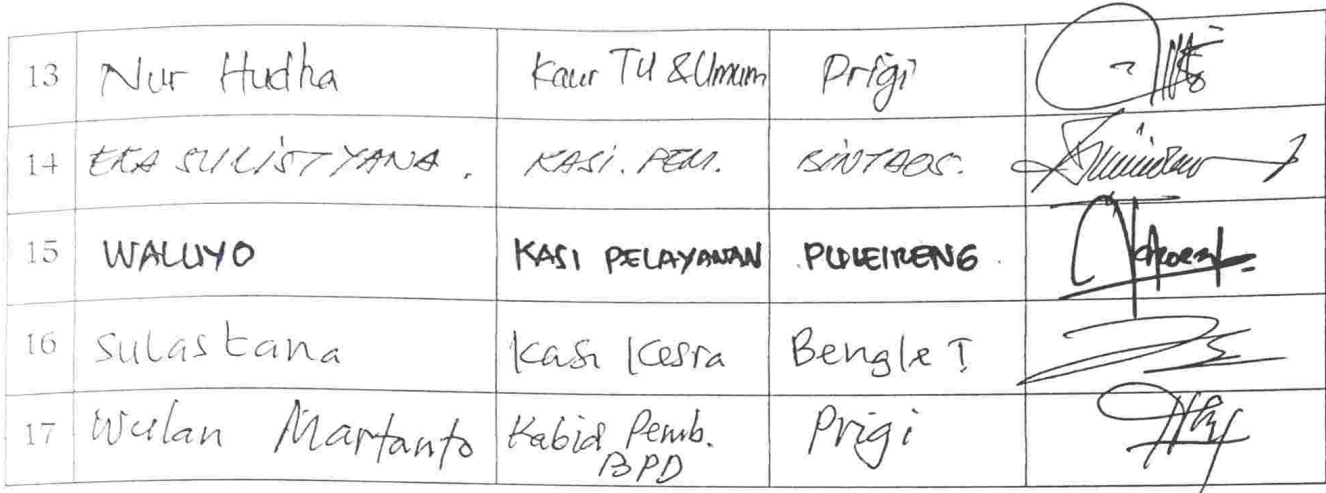 13 Nur Hudha Kaur TU & Umum Prigi
14 EKA SULISTYANA. KASI. PEM. BINTAOS.
15 WALUYO KASI PELAYANAN PULEIRENG
16 Sulastana Kasi Kesra Bengle I
17 Wulan Martanto Kabid Pemb. Prigi
BPD